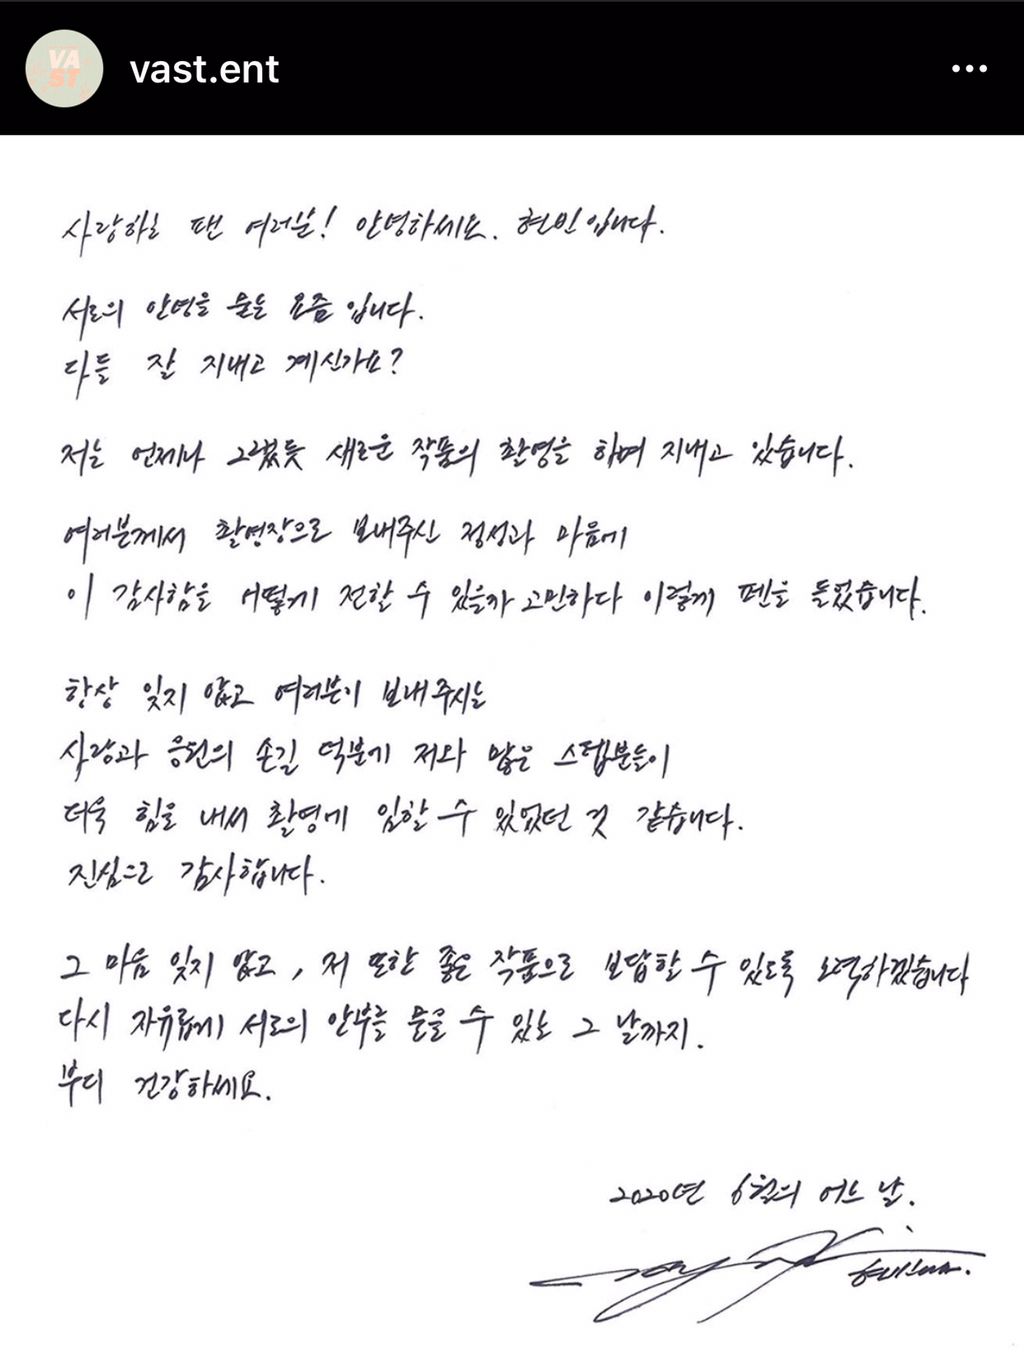 VAST
vast.ent
사랑하는 팬 여러분! 안녕하세요. 현빈입니다.
서로의 안녕을 묻는 요즘 입니다.
다들 잘 지내고 계신가요?
저는 언제나 그랬듯 새로운 작품의 촬영을 하며 지내고 있습니다.
여러분께서 촬영장으로 보내주신 정성과 마음에
이 감사함을 어떻게 전할 수 있을까 고민하다 이렇게 펜을 들었습니다.
항상 잊지 않고 여러분이 보내주시는
사랑과 응원의 손길 덕분에 저와 많은 스텝분들이
더욱 힘을 내서 촬영에 임할 수 있었던 것 같습니다.
진심으로 감사합니다.
그 마음 잊지 않고, 저 또한 좋은 작품으로 보답할 수 있도록 노력하겠습니다
다시 자유롭게 서로의 안부를 물을 수 있는 그 날까지.
부디 건강하세요.
2020년 6월의 어느 날.